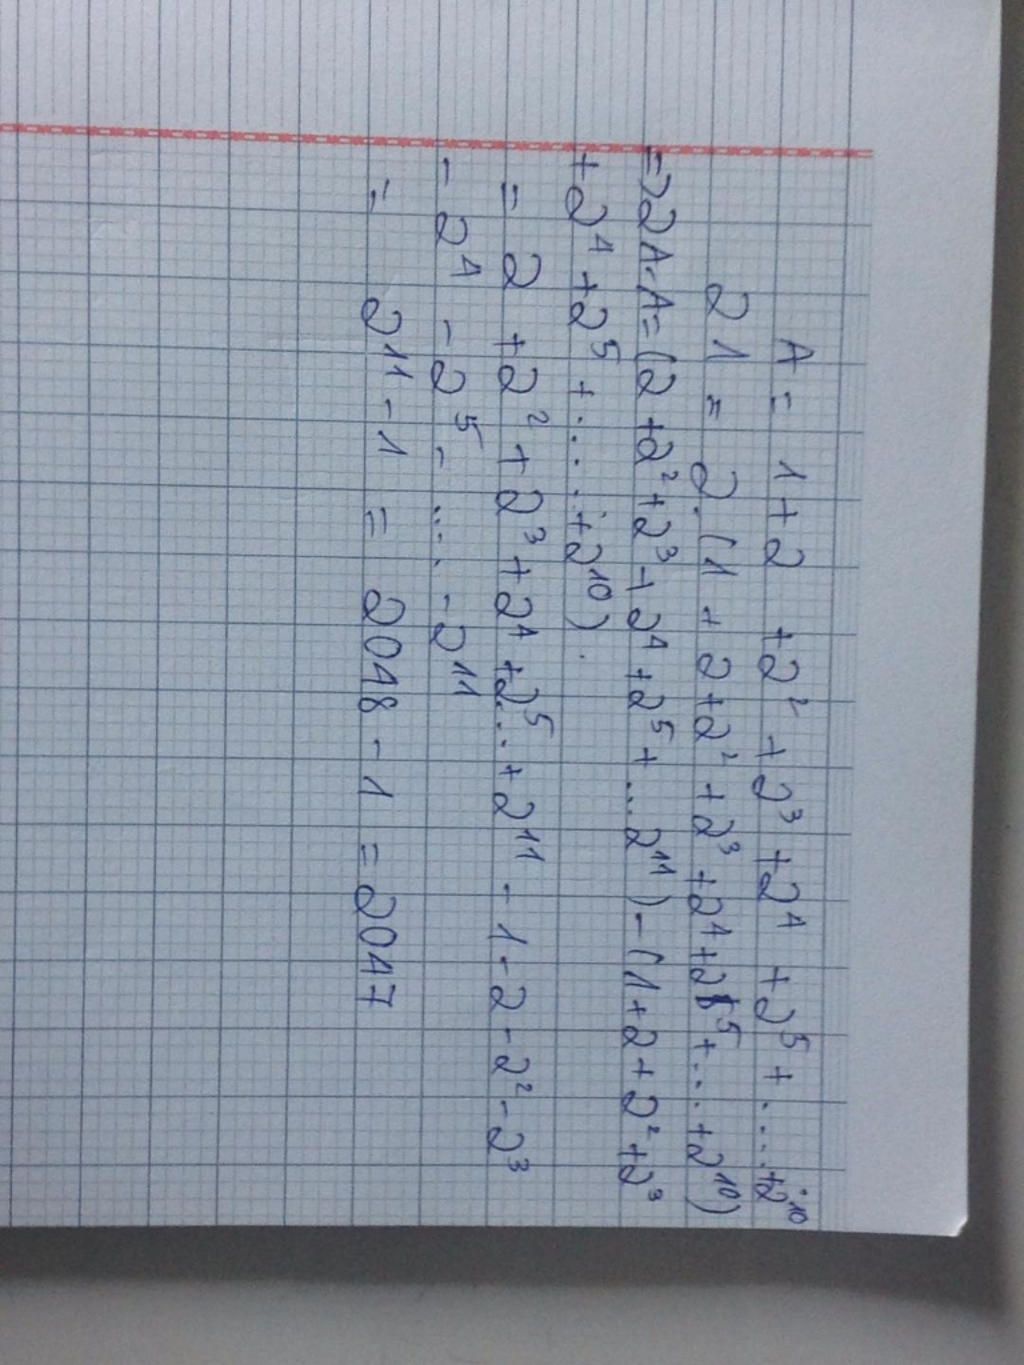 A = 1+2 +2² + 2³ +2⁴ +2⁵ + ..... +2¹⁰
21 = 2.(1 + 2+2² +2³ +2⁴+2⁵+... +2¹⁰)
=>2A-A=(2 +2²+2³+2⁴ +2⁵+ ...2¹¹)-(1+2+2²+2³
+2⁴ +2⁵ + ..... +2¹⁰).
= 2 +2² + 2³ +2⁴ +2⁵... +2¹¹ -1-2-2²-2³
-2⁴ -2⁵- .... -2¹¹
= 2¹¹-1 = 2048 -1 =2047